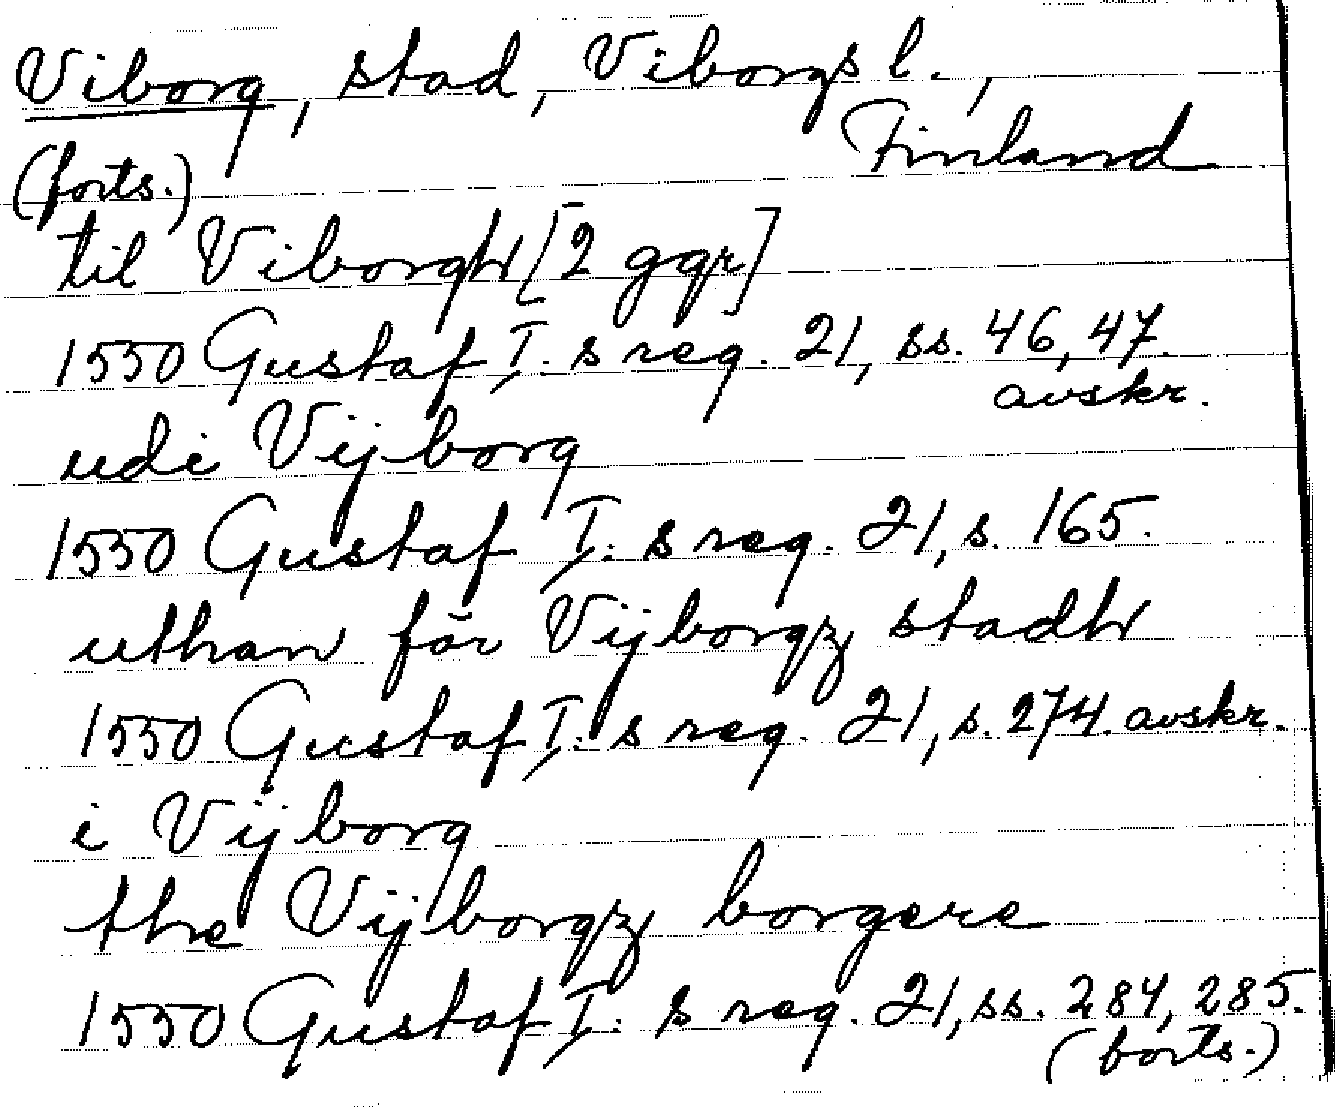 Viborg, stad, Viborgs l.,
Finland
(forts.)
til Viborgh [2 ggr]
1550 Gustaf I. s reg. 21, ss. 46, 47.
avskr.
udi Vijborg
1550 Gustaf I. s reg. 21, s. 165.
uthan för Vijborgz stadh
1550 Gustaf I. s reg. 21, s. 274. avskr.
i Vijborg
the Vijborgz borgere
1550 Gustaf I. s reg. 21, ss. 284, 285.
(forts.)